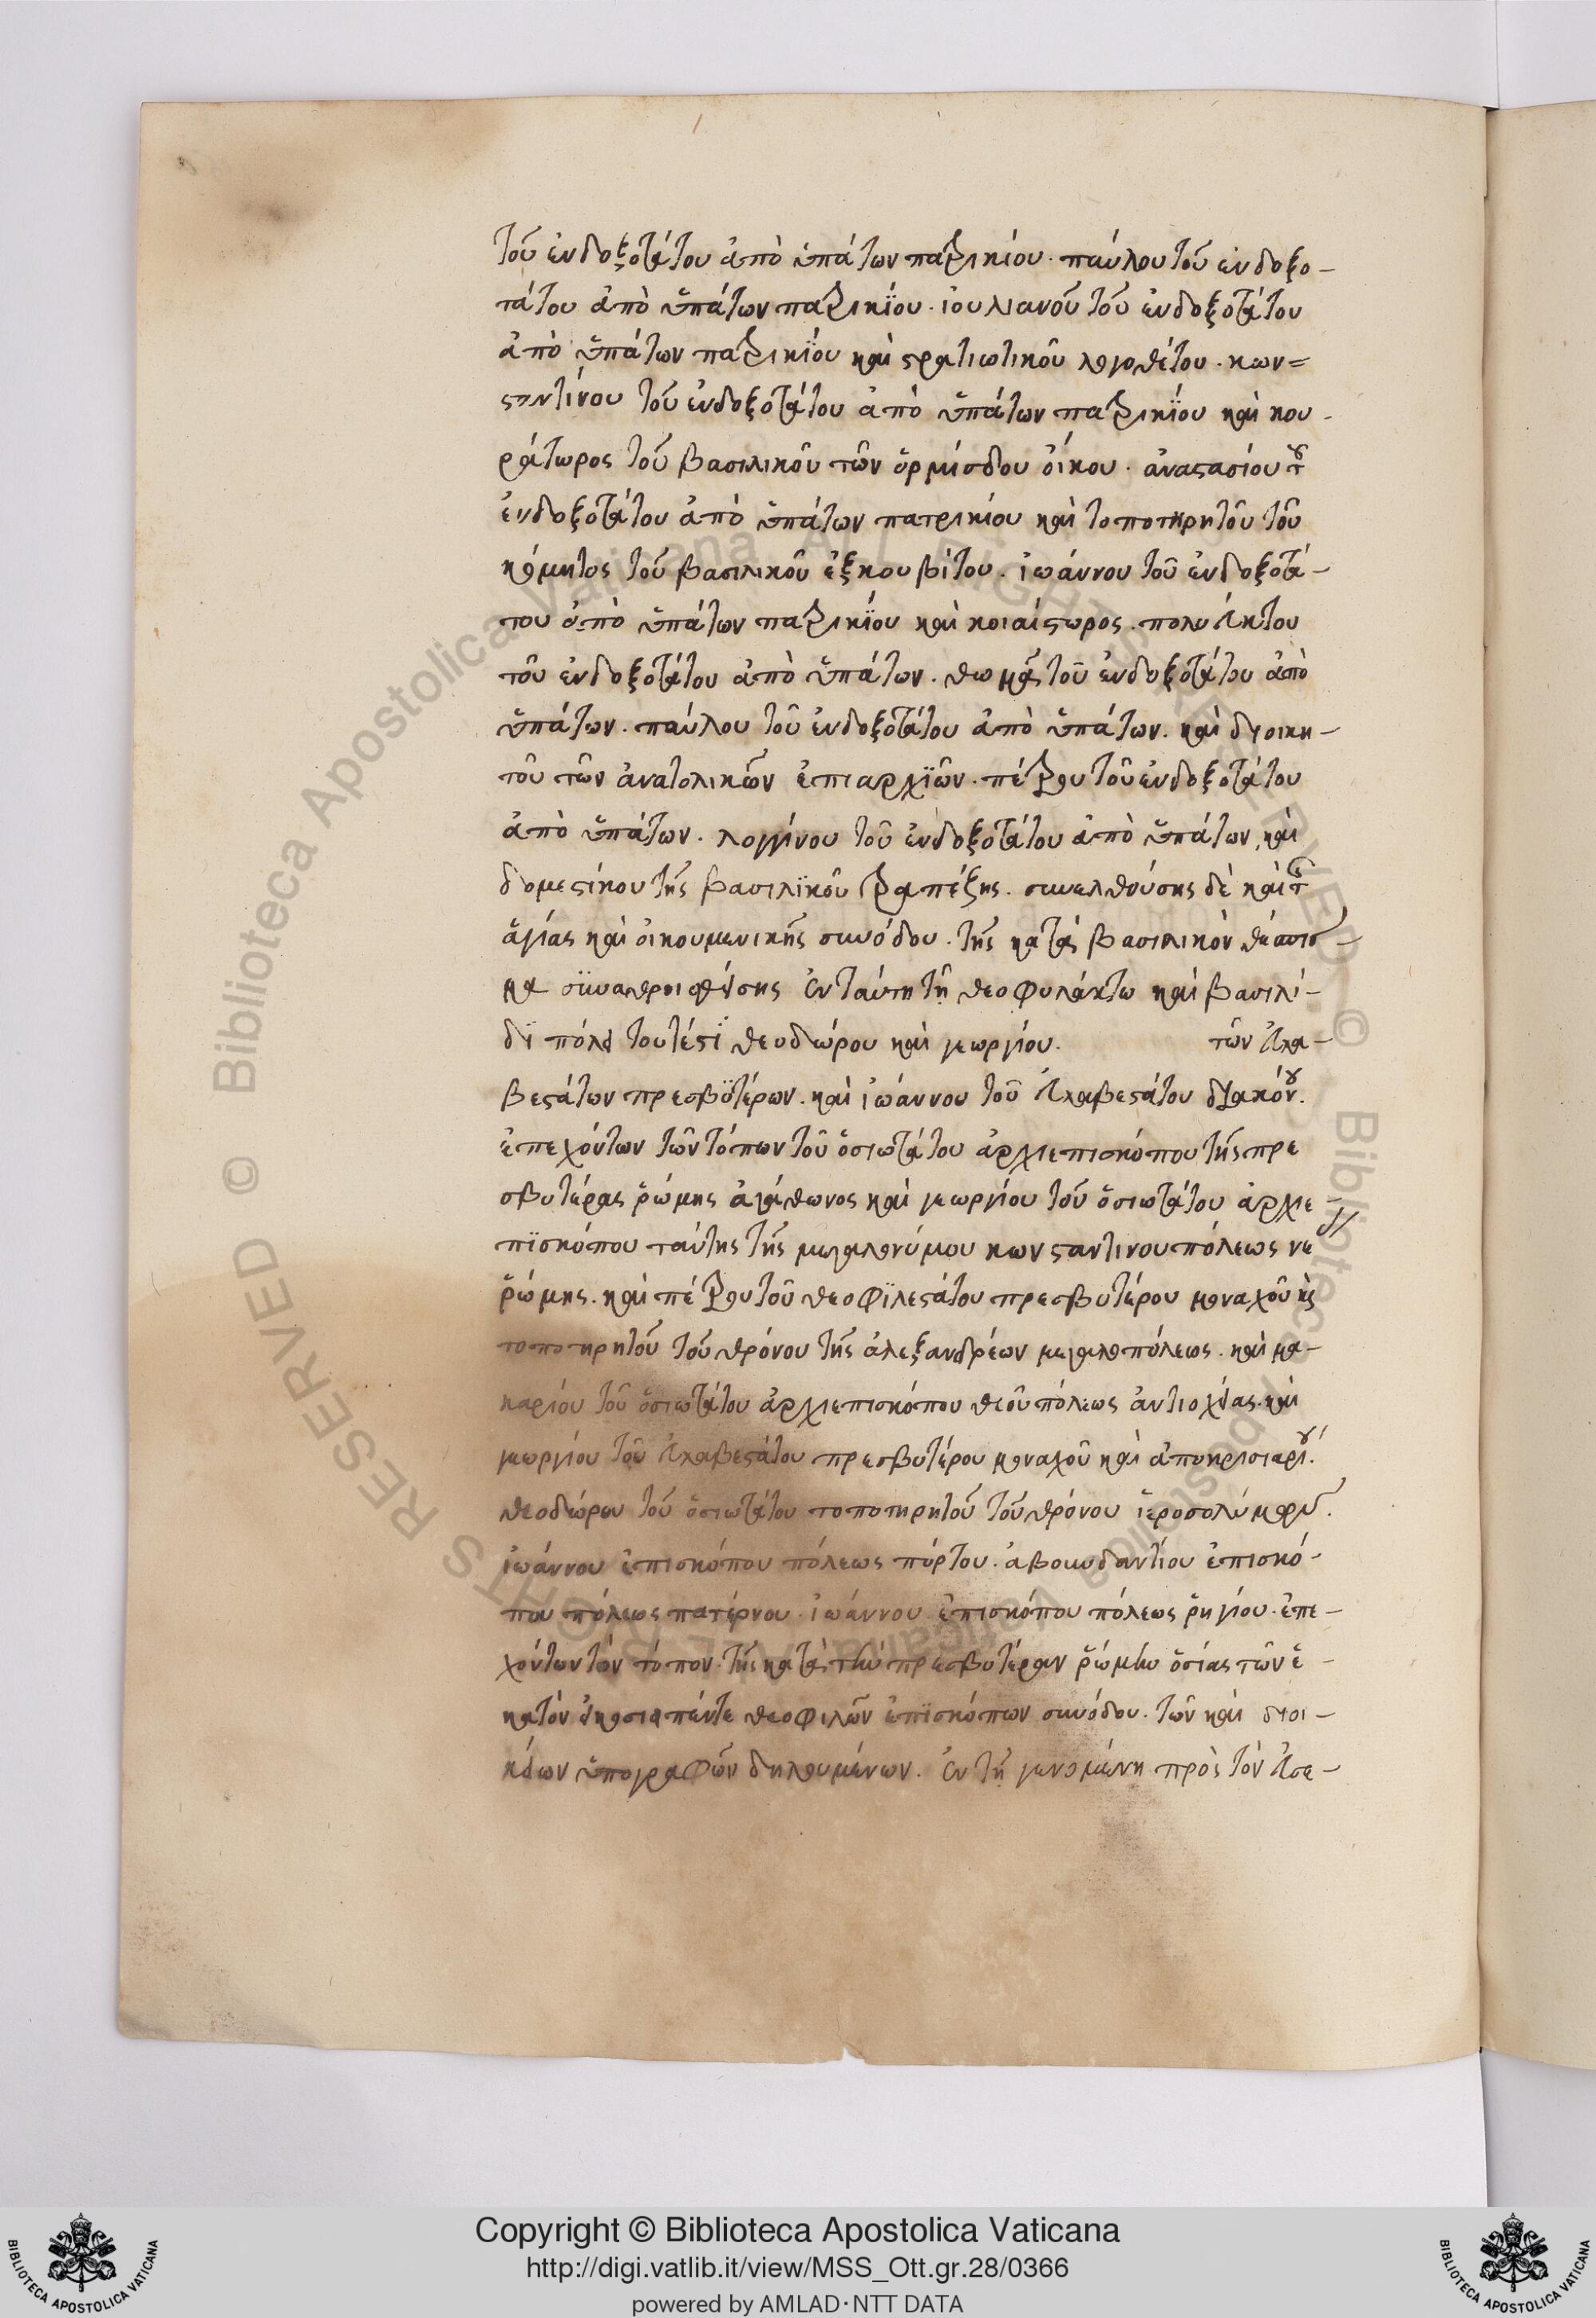 τοῦ ἐνδοξοτάτου ἀπὸ ὑπάτων πατρικίου. παύλου τοῦ ἐνδοξο-
τάτου ἀπὸ ὑπάτων πατρικΐου. ἰουλιανοῦ τοῦ ἐνδοξοτάτου
ἀπὸ ὑπάτων πατρικΐου καὶ στρατιωτικοῦ λογοθέτου. κων=
σταντίνου τοῦ ἐνδοξοτάτου ἀπὸ ὑπάτων πατρικΐου καὶ κου-
ράτωρος τοῦ βασιλικοῦ τῶν ὁρμίσδου οἴκου. ἀναστασίου τοῦ
ἐνδοξοτάτου ἀπὸ ὑπάτων πατρικίου καὶ τοποτηρητοῦ τοῦ
κόμητος τοῦ βασιλικοῦ ἐξκουβίτου. ἰωάννου τοῦ ἐνδοξοτά-
του ἀπὸ ὑπάτων πατρικΐου καὶ κοιαίστωρος. πολυεύκτου
τοῦ ἐνδοξοτάτου ἀπὸ ὑπάτων. θωμᾶ τοῦ ἐνδοξοτάτου ἀπὸ
ὑπάτων. παύλου τοῦ ἐνδοξοτάτου ἀπὸ ὑπάτων. καὶ διοικη-
τοῦ τῶν ἀνατολικῶν ἐπιαρχϊῶν. πέτρου τοῦ ἐνδοξοτάτου
ἀπὸ ὑπάτων. λογγίνου τοῦ ἐνδοξοτάτου ἀπὸ ὑπάτων, καὶ
δομεστίκου τῆς βασιλϊκοῦ τραπέζης. συνελθούσης δὲ καὶ τῆς
ἁγίας καὶ οἰκουμενικῆς συνόδου. τῆς κατὰ βασιλικὸν θέσπισ-
μα σϋναθροισθείσης ἐν ταύτη τῆ θεοφυλάκτω καὶ βασιλί-
δϊ πόλει τουτέστϊ θεοδώρου καὶ γεωργίου. τῶν εὐλα-
βεστάτων πρεσβϋτέρων. καὶ ἰωάννου τοῦ εὐλαβεστάτου διακόνου.
ἐπεχόντων τῶν τόπων τοῦ ὁσιωτάτου ἀρχιεπισκόπου τῆς πρε
σβυτέρας ῥώμης ἀγάθωνος καὶ γεωργίου τοῦ ὁσιωτάτου ἀρχιε
πϊσκόπου ταύτης τῆς μεγαλονύμου κωνσταντινουπόλεως νέ
ῥώμης. καὶ πέτρου τοῦ θεοφϊλεστάτου πρεσβυτέρου μοναχοῦ καὶ
τοποτηρητοῦ τοῦ θρόνου τῆς ἀλεξανδρέων μεγαλοπόλεως. καὶ μα-
καρίου τοῦ ὁσιωτάτου ἀρχιεπισκόπου θεοῦ πόλεως ἀντιοχείας. καὶ
γεωργίου τοῦ εὐλαβεστάτου πρεσβυτέρου μοναχοῦ καὶ ἀποκρισιαρίου.
θεοδώρου τοῦ ὁσιωτάτου τοποτηρητοῦ τοῦ θρόνου ἱεροσολύμων.
ἰωάννου ἐπισκόπου πόλεως πόρτου. ἀβουνδαντίου ἐπισκό-
που πόλεως πατέρνου. ἰωάννου ἐπισκόπου πόλεως ῥηγίου. ἐπε-
χόντων τὸν τόπον. τῆς κατὰ τὴν πρεσβυτέραν ῥώμην ὁσίας τῶν ἑ-
κατὸν εἰκοσιπέντε θεοφιλῶν ἐπϊσκόπων συνόδου. τῶν καὶ διοι-
κείων ὑπογραφῶν δηλουμένων. ἐν τῆ γενομένη πρὸς τὸν εὐσε-
Copyright © Biblioteca Apostolica Vaticana
http://digi.vatlib.it/view/MSS_Ott.gr.28/0366
powered by AMLAD·NTT DATA
© Biblioteca Apostolica Vaticana ALL RIGHTS RESERVED © Biblioteca Apostolica Vaticana ALL RIGHTS RESERVED
BIBLIOTECA APOSTOLICA VATICANA
BIBLIOTECA APOSTOLICA VATICANA